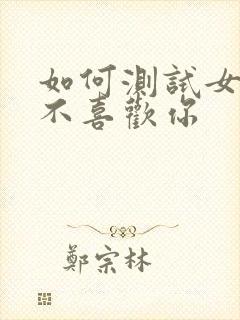 如何測試女
不喜歡你
鄭宗林